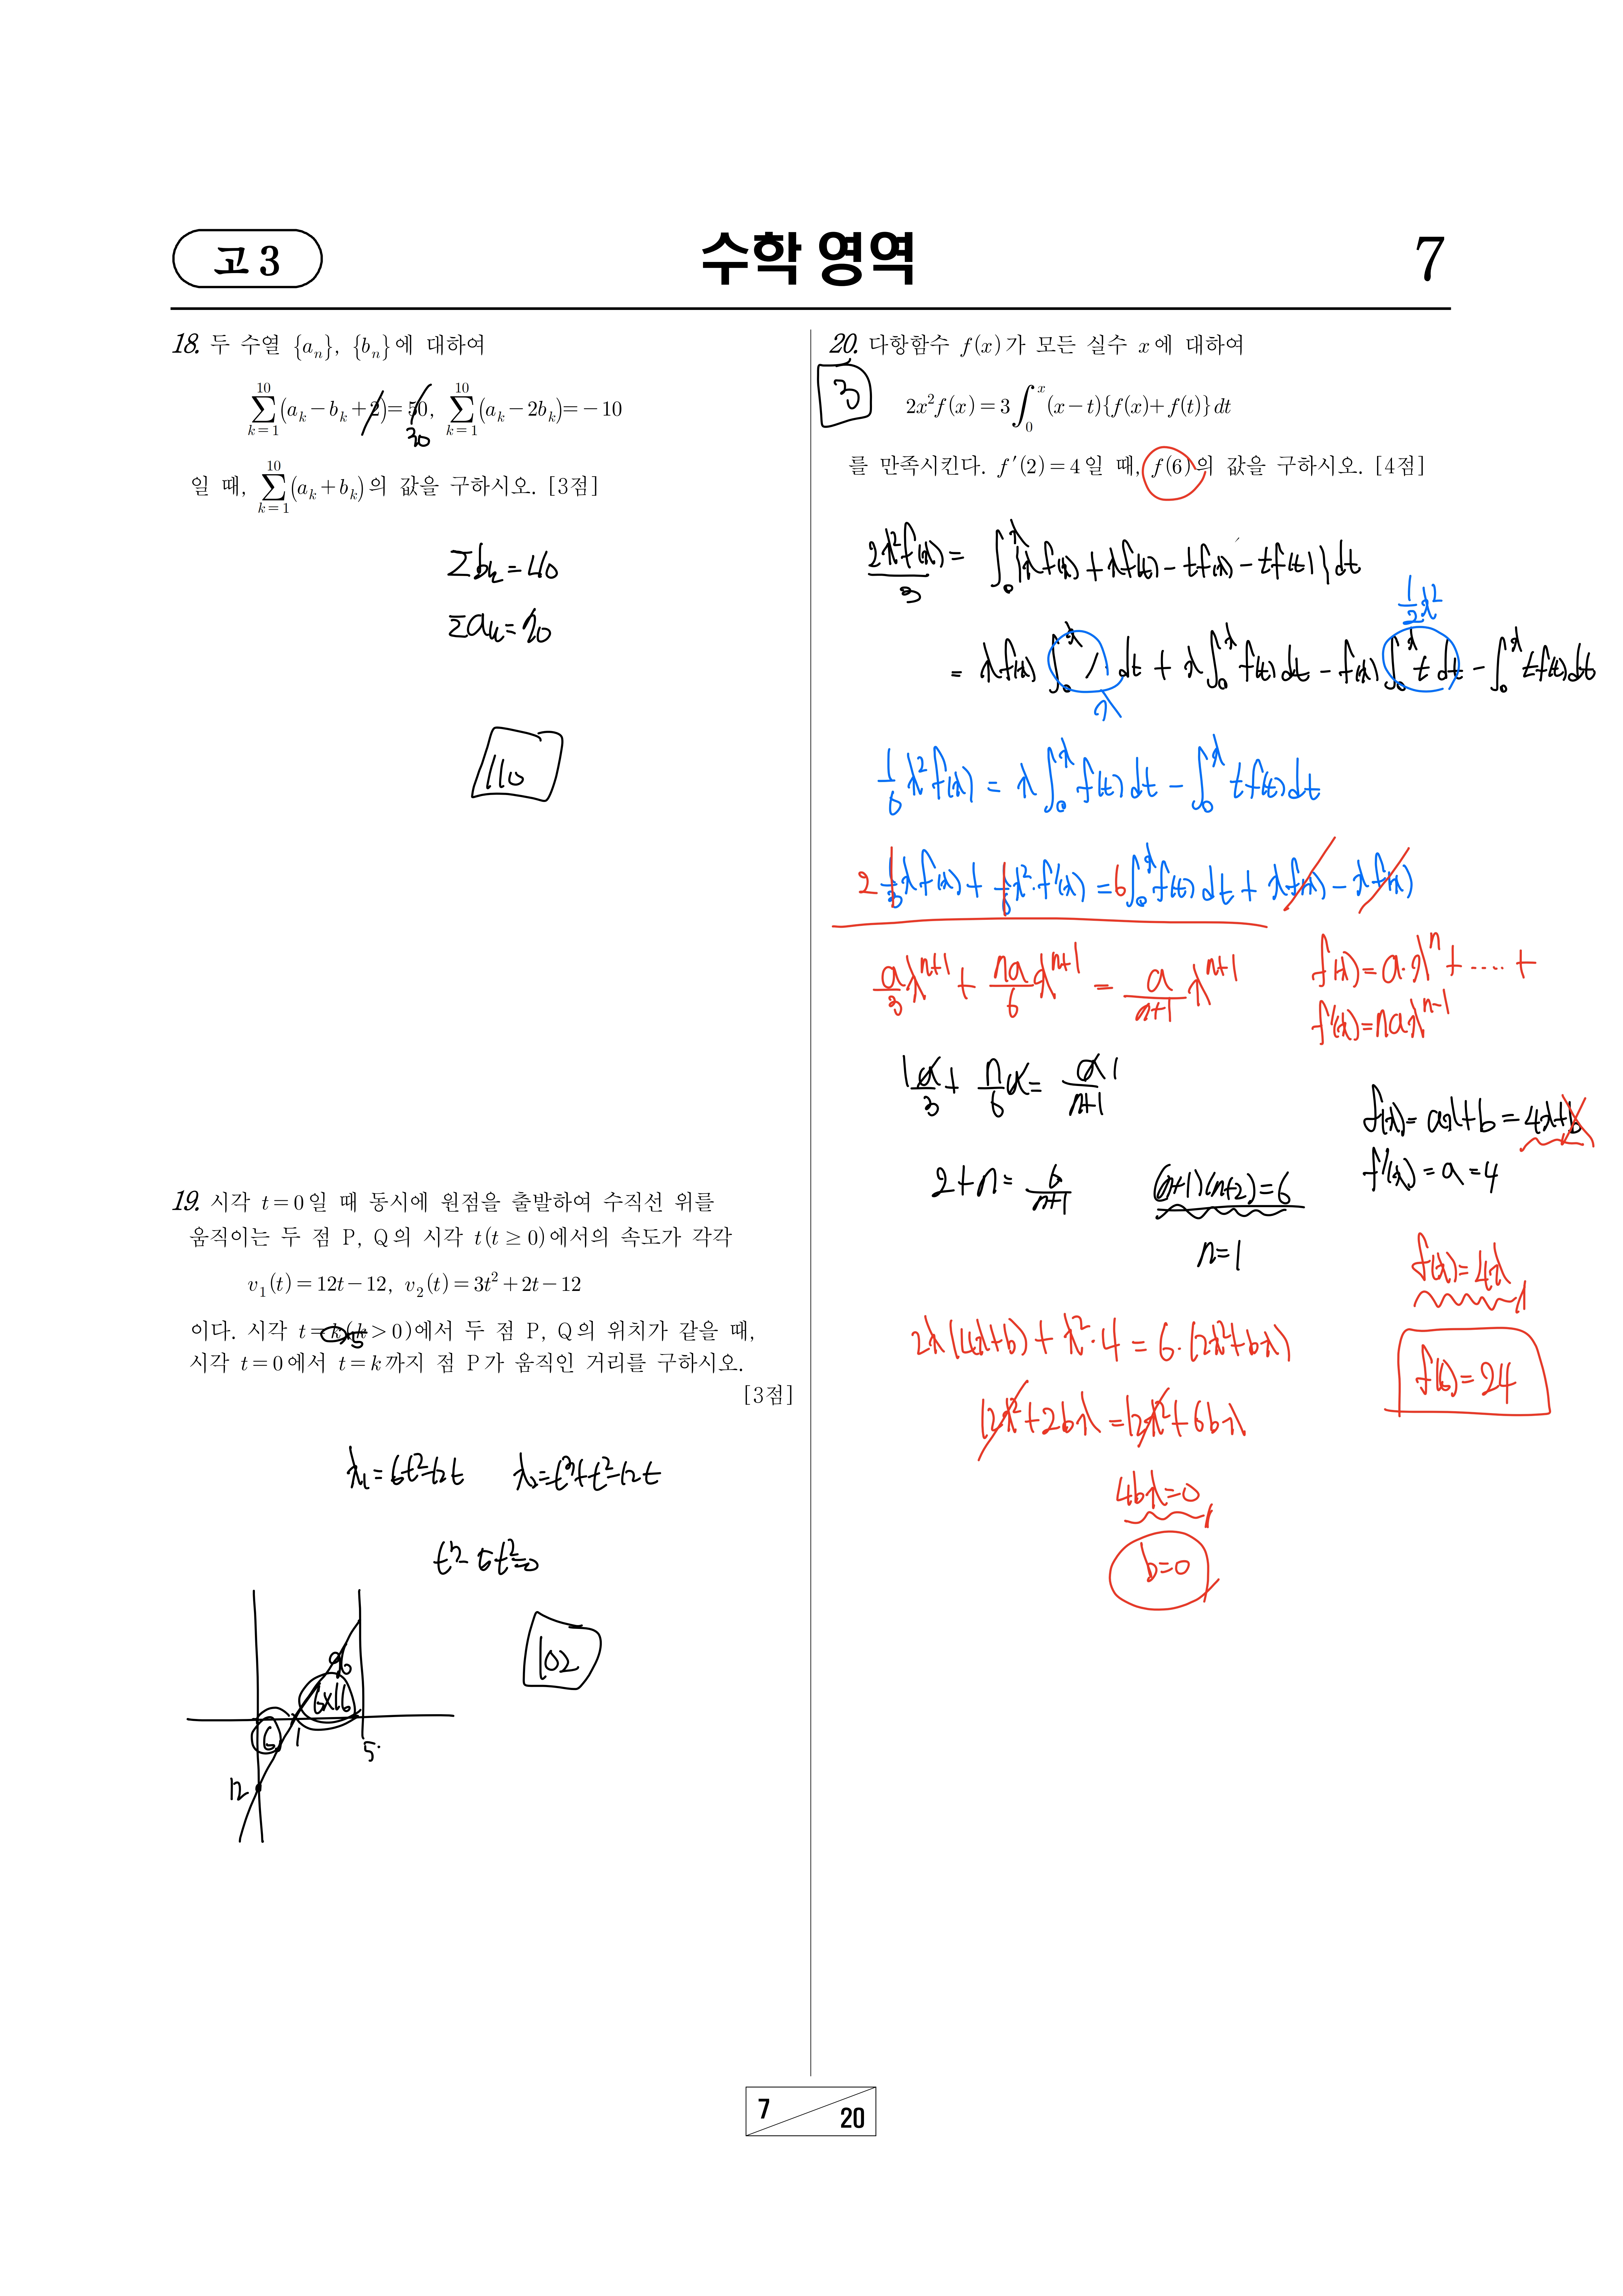 고 3
수학 영역
7
18. 두 수열 {aₙ}, {bₙ}에 대하여
∑_{k=1}^{10}(aₖ−bₖ+2)=50, ∑_{k=1}^{10}(aₖ−2bₖ)=−10
30
일 때, ∑_{k=1}^{10}(aₖ+bₖ)의 값을 구하시오. [3점]
Σbₖ=40
110
19. 시각 t=0일 때 동시에 원점을 출발하여 수직선 위를
움직이는 두 점 P, Q의 시각 t(t≥0)에서의 속도가 각각
v₁(t)=12t−12, v₂(t)=3t²+2t−12
이다. 시각 t=k(k>0)에서 두 점 P, Q의 위치가 같을 때,
5
시각 t=0에서 t=k까지 점 P가 움직인 거리를 구하시오.
[3점]
x₁=6t²−12t x₂=t³+t²−12t
t³−5t²=0
102
96
6×16
6 1
5
12
20. 다항함수 f(x)가 모든 실수 x에 대하여
3
2x²f(x)=3∫₀ˣ(x−t){f(x)+f(t)}dt
를 만족시킨다. f′(2)=4일 때, f(6)의 값을 구하시오. [4점]
2x²f(x)/3 = ∫₀ˣ{xf(x)+xf(t)−tf(x)−tf(t)}dt
½x²
= xf(x)∫₀ˣ1dt + x∫₀ˣf(t)dt − f(x)∫₀ˣt dt − ∫₀ˣtf(t)dt
x
1/6 x²f(x) = x∫₀ˣf(t)dt − ∫₀ˣtf(t)dt
2 1/3 xf(x) + 1/6 x²·f′(x) = 6∫₀ˣf(t)dt + xf(x) − xf(x)
a/3 xⁿ⁺¹ + na/6 xⁿ⁺¹ = a/(n+1) xⁿ⁺¹
f(x)=a·xⁿ+·····+
f′(x)=naxⁿ⁻¹
1a/3 + n/6 a = a1/(n+1)
f(x)=ax+b=4x+b
f′(x)=a=4
2+n=6/(n+1) (n+1)(n+2)=6
n=1
f(x)=4x
2x(4x+b)+x²·4=6·(2x²+bx)
f(6)=24
12x²+2bx=12x²+6bx
4bx=0
b=0
7
20